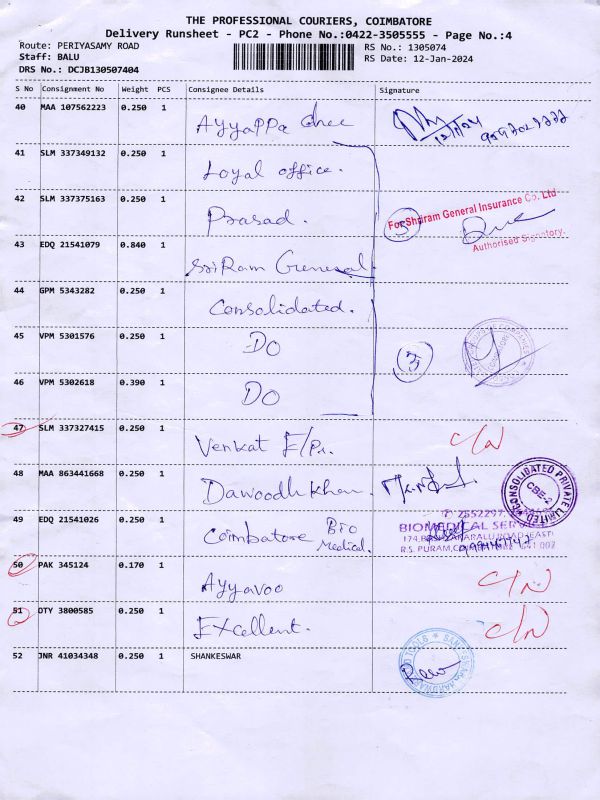 THE PROFESSIONAL COURIERS, COIMBATORE
Delivery Runsheet - PC2 - Phone No.:0422-3505555 - Page No.:4
Route: PERIYASAMY ROAD RS No.: 1305074
Staff: BALU RS Date: 12-Jan-2024
DRS No.: DCJB130507404
S No Consignment No Weight PCS Consignee Details Signature
40 MAA 107562223 0.250 1
Ayyappa Ghee 12/1/24
41 SLM 337349132 0.250 1
Loyal office.
42 SLM 337375163 0.250 1
Prasad. 5 For Shriram General Insurance Co. Ltd
Authorised Signatory.
43 EDQ 21541079 0.840 1
Sri Ram General
44 GPM 5343282 0.250 1
Consolidated.
45 VPM 5301576 0.250 1
DO
46 VPM 5302618 0.390 1
DO
47 SLM 337327415 0.250 1
Venkat E/Pr. C/N
48 MAA 863441668 0.250 1
Dawoodh khan. CONSOLIDATED PRIVATE LIMITED CBE-2
49 EDQ 21541026 0.250 1
Coimbatore Bio Medical. BIOMEDICAL
R.S. PURAM,
50 PAK 345124 0.170 1
Ayyavoo C/N
51 DTY 3800585 0.250 1
Excellent. C/N
52 JNR 41034348 0.250 1 SHANKESWAR